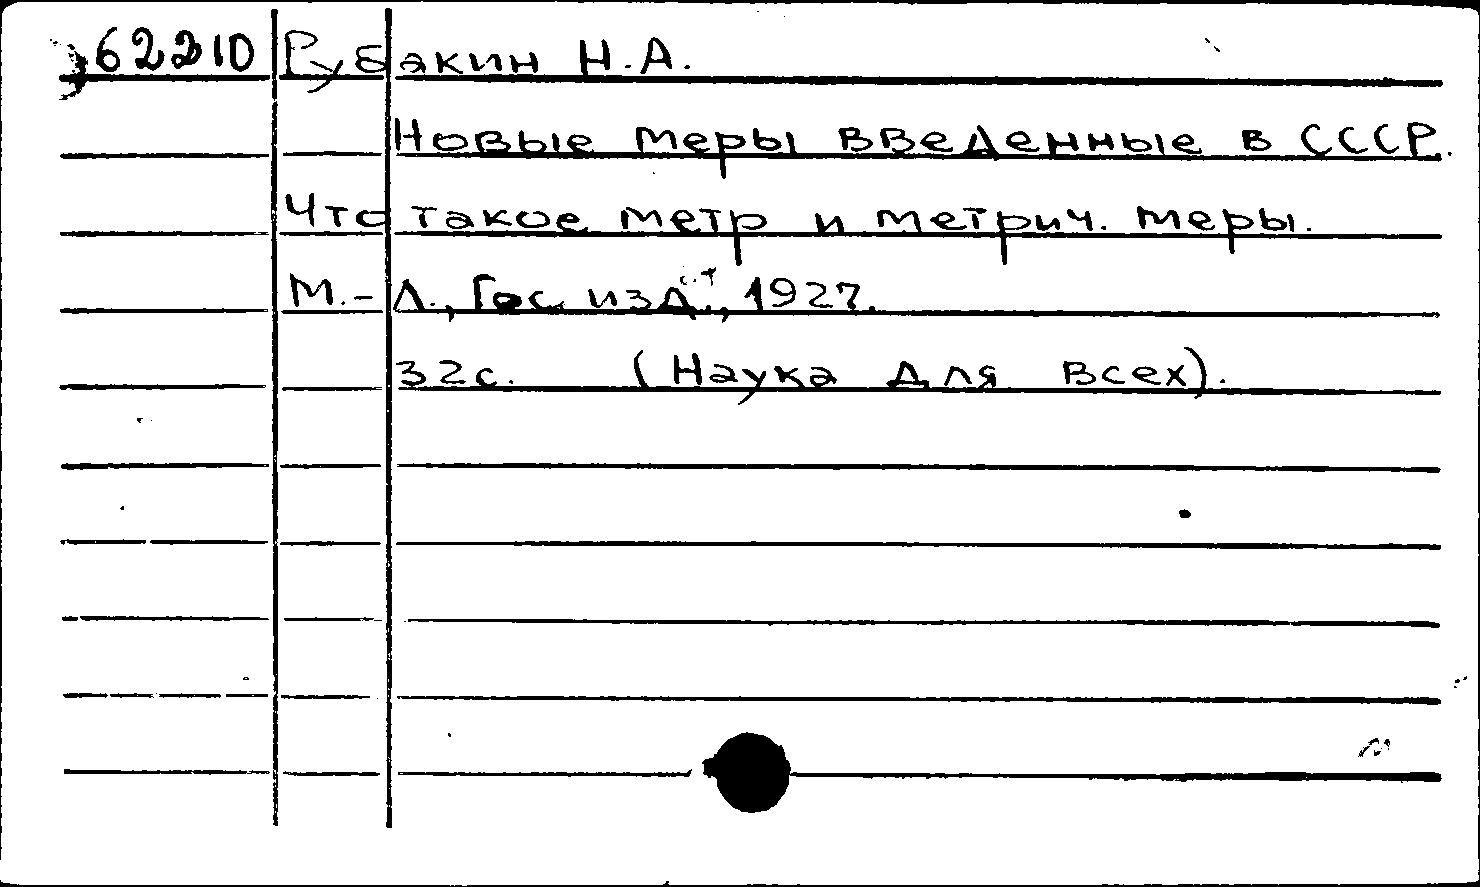 62210 Рубакин Н.А.
Новые меры введенные в СССР.
Что такое метр и метрич. меры.
М.-Л., Гос. изд., 1927.
32с. (Наука для всех).